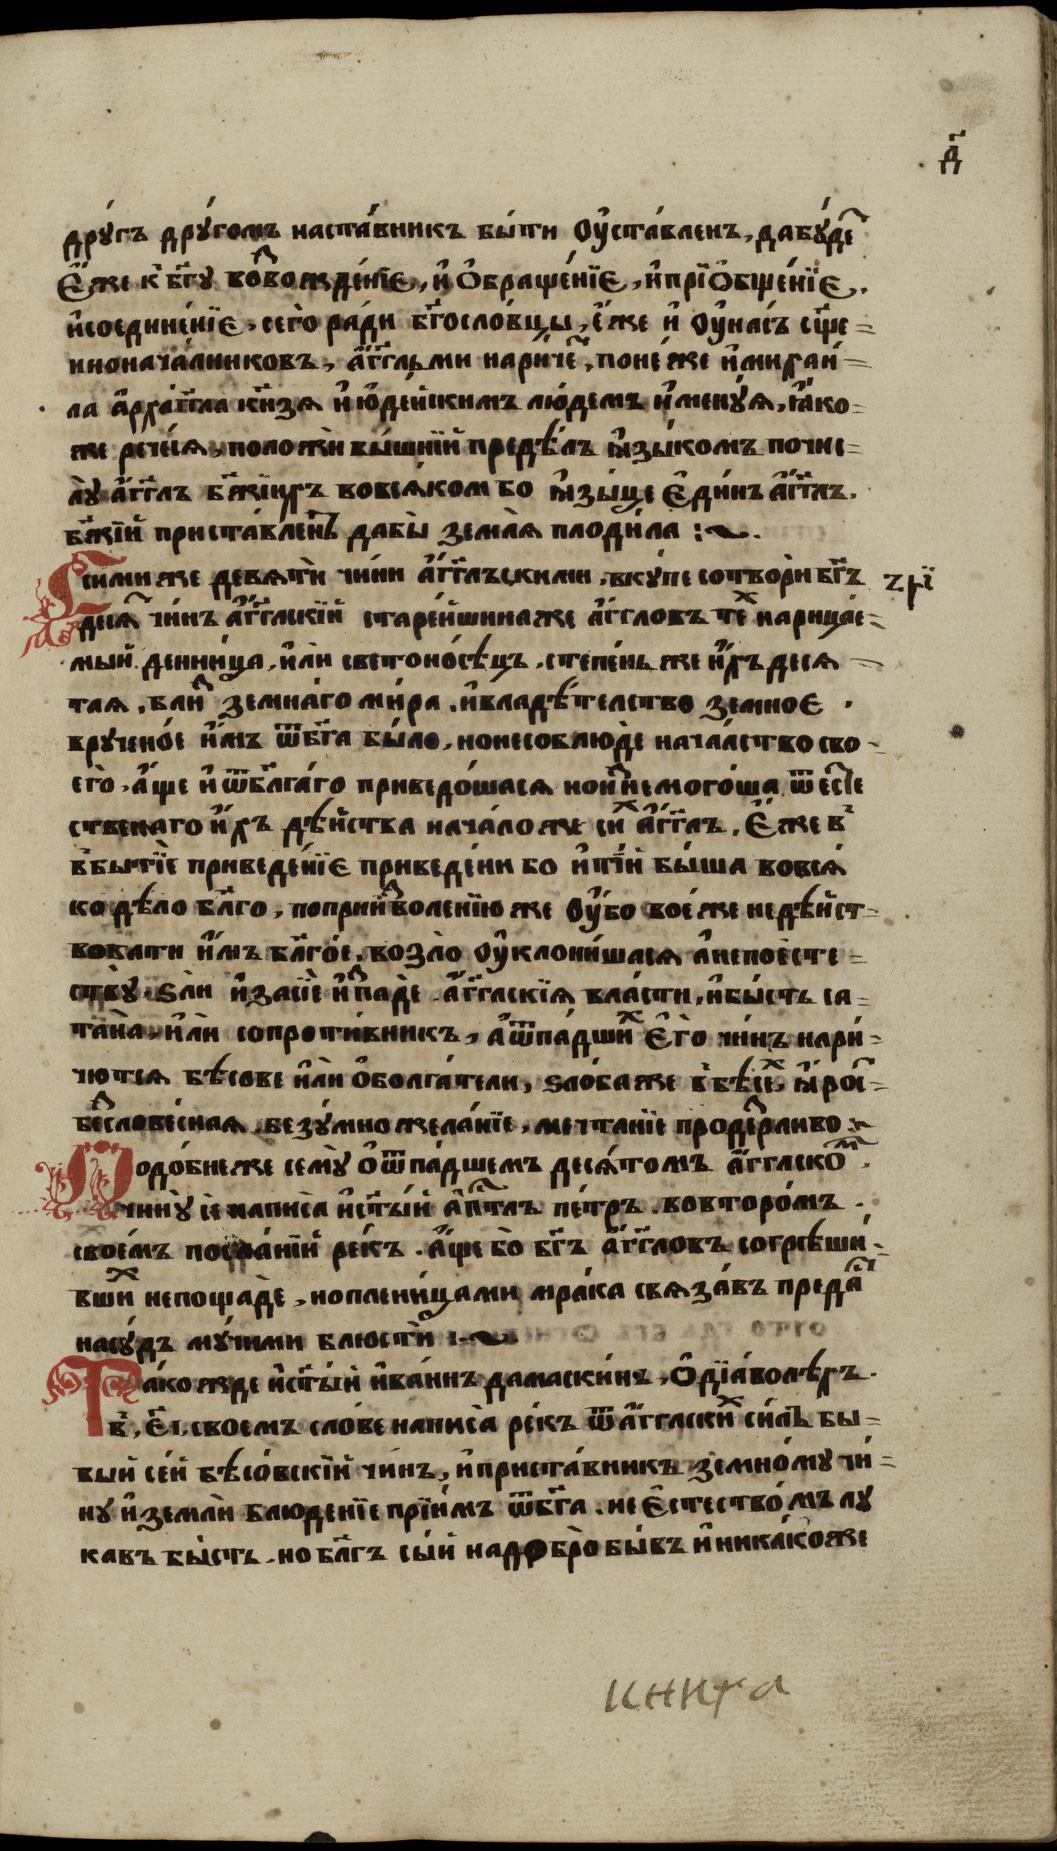 д҃
дрꙋ́гъ дрꙋ́гомъ наста́вникъ бы́ти ᲂу҆ста́вленъ, дабꙋ́деⷮ
є҆́же к̾ бг҃ꙋ воⷥвожде́нїе, и҆ ѻ҆браще́нїе, и҆прїѻ҆бще́нїе.
и҆соедине́нїе, сего̀ ра́ди бг҃осло́вцы, є҆́же и҆ ᲂу҆на́съ сщ҃е-
нонача́лниковъ, а҆́гг҃льми нариче́ⷮ, поне́же и҆михаи́-
ла а҆рха́гг҃ла кн҃зя и҆ю҆де́йскимъ лю́демъ и҆менꙋ́я, ꙗ҆́ко-
же рече́ся, положѝ вы́шнїй предѣ́лъ ꙗ҆зы́комъ почис-
лꙋ̀ а҆́гг҃лъ бж҃їихъ вовся́ком бо ꙗ҆зы́це є҆ди́нъ а҆́гг҃лъ.
бж҃їй приста́вленъ дабы̀ земля̀ плоди́ла :~.
Сими же девятѝ чи́ни а҆́гг҃лъскими, вкꙋ́пе сотворѝ бг҃ъ
деся́ⷮ чи́нъ а҆́гг҃лскїй старе́йшина же а҆́гг҃ловъ теⷯ нарица́е-
мый денни́ца, и҆лѝ светоно́сѣцъ, степе́нь же и҆́хъ деся-
тая, блиⷥ земна́го ми́ра, и҆владѣ́телство земно́е.
врꙋчено́е и҆́мъ ѿбг҃а бы́ло, нонесоблюде нача́лство сво-
его̀, а҆́ще и҆ ѿбл҃га́го приведо́шася ноиⷥнемого́ша, ѿ есⷮе
ственаго и҆́хъ дѣ́йства нача́ло же сиⷯ а҆́гг҃лъ, є҆́же в̾
в̾бытїѐ приведе́нїе приведе́ни бо и҆тїи бы́ша вовся́
ко дѣ́ло бл҃го, поприⷥволенїю же ᲂу҆́бо вое́же недѣ́йст-
вовати и҆́мъ бл҃го́е, во зло̀ ᲂу҆клони́шася а҆непоесте-
ствꙋ̀ ѕли и҆ засїѐ и҆ⷥпаде а҆́гг҃лскїя вла́сти, и҆бы́сть са-
тана̀, и҆лѝ сопроти́вникъ, а҆ѿпа́дшиⷯ є҆го̀ чи́нъ нари́-
чютъся бѣ́сове и҆лѝ ѻ҆болга́тели, ѕло́ба же в̾бѣ́сеⷯ, ꙗ҆́росⷮ-
беⷥслове́сная, безꙋ́мно жела́нїе, мечтанїе продеⷥрливо ~
Подо́бне же семꙋ̀ ѻ҆ ѿпа́дшемъ деся́томъ а҆́гг҃лскоⷨ.
чи́нꙋ сѐ написа̀ и҆ст҃ы́й а҆пⷭ҇тлъ пе́тръ, вовторо́мъ.
свое́мъ посла́нїи ре́къ. а҆́ще бо̀ бг҃ъ а҆́гг҃ловъ согрѣши́-
вшиⷯ непощадѐ, ноплени́цами мра́ка связа́въ предаⷭ҇
насꙋ́дъ мꙋ́чими блюстѝ :~
Та́кожде и҆ст҃ы́й и҆ва́ннъ дамаски́нъ, ѻ҆дїа́волѣхъ.
в҃, є҆і, своемъ сло́ве написа̀ ре́къ ѿ а҆́гг҃лскиⷯ си́лъ бы-
вый се́й бѣсо́вскїй чи́нъ, и҆приста́вникъ земно́мꙋ чи́-
нꙋ и҆землѝ блюденїе прїи́мъ ѿбг҃а. не є҆стество́мъ лꙋ
кавъ бы́сть, но бл҃гъ сы́й надобро̀ бы́въ и҆никако́же
книга